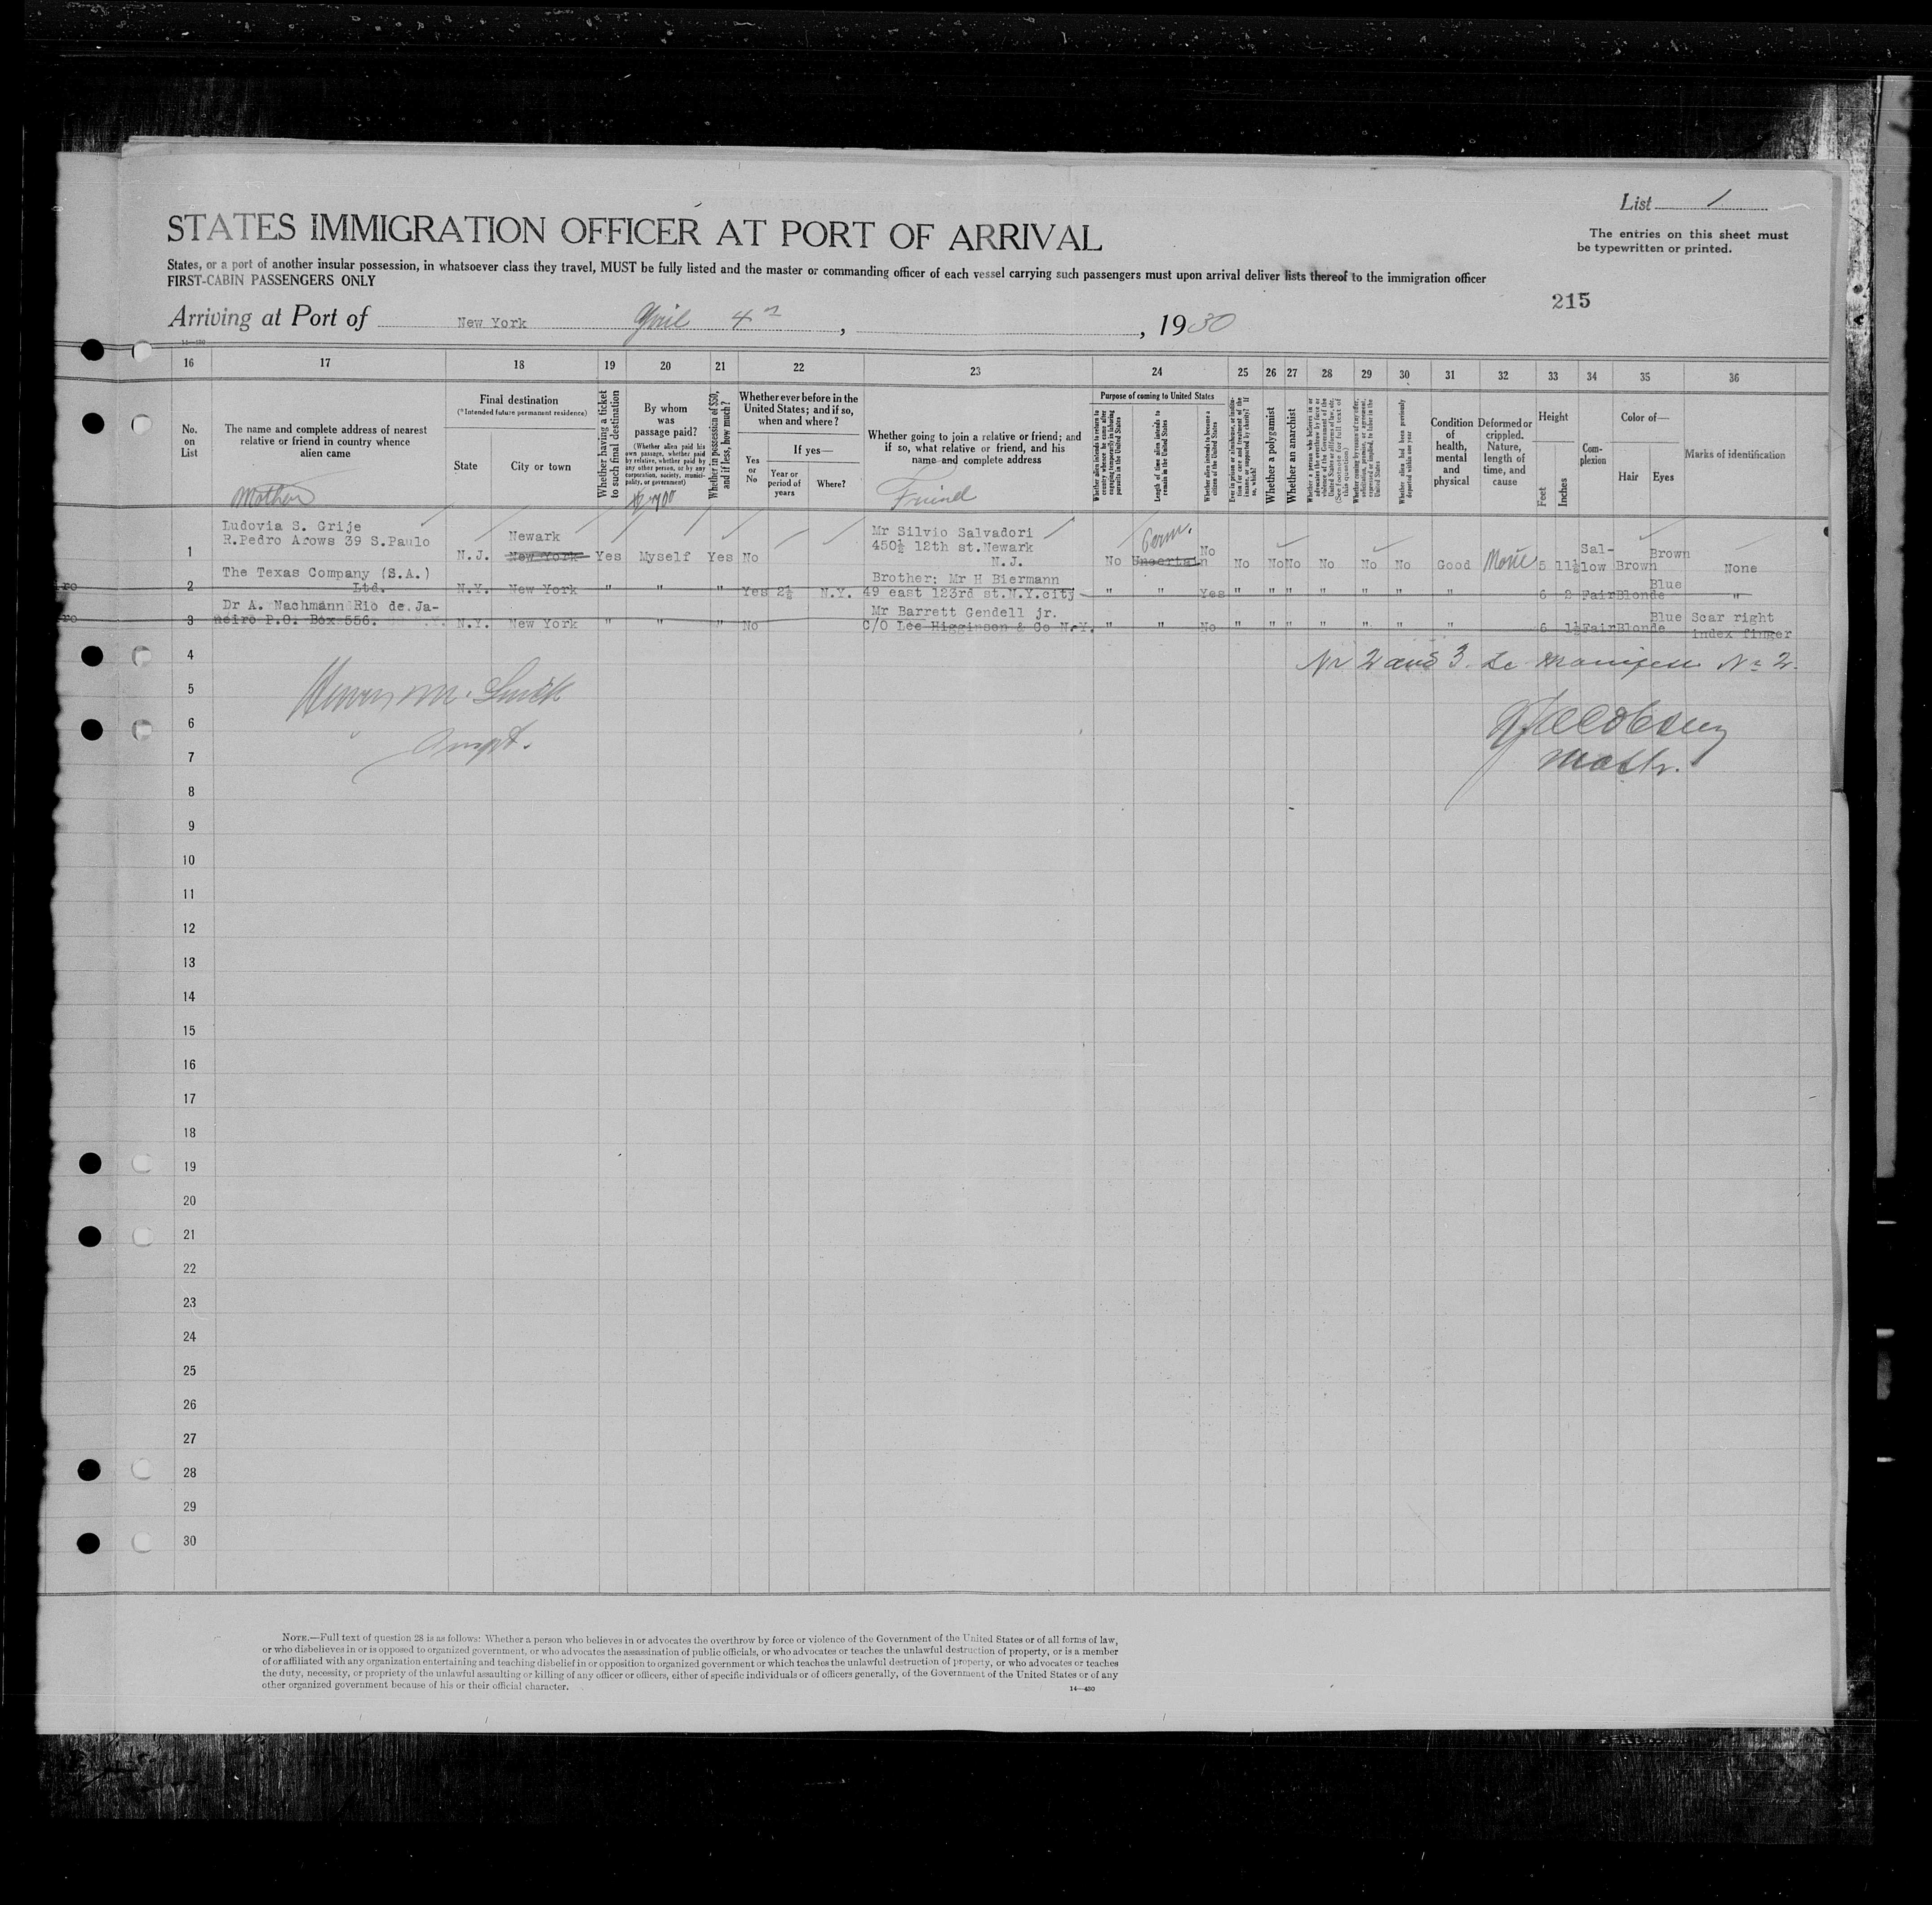 List 1
The entries on this sheet must
be typewritten or printed.
STATES IMMIGRATION OFFICER AT PORT OF ARRIVAL
States, or a port of another insular possession, in whatsoever class they travel, MUST be fully listed and the master or commanding officer of each vessel carrying such passengers must upon arrival deliver lists thereof to the immigration officer
FIRST-CABIN PASSENGERS ONLY
215
Arriving at Port of New York April 4, , 1930
14—430
16 17 18 19 20 21 22 23 24 25 26 27 28 29 30 31 32 33 34 35 36
No. on List
The name and complete address of nearest
relative or friend in country whence
alien came
Mother
Final destination
(*Intended future permanent residence)
State
City or town
Whether having a ticket
to such final destination
By whom
was
passage paid?
(Whether alien paid his
own passage, whether paid
by relative, whether paid by
any other person, or by any
corporation, society, munici-
pality, or government)
Whether in possession of $50,
and if less, how much?
Whether ever before in the
United States; and if so,
when and where?
Yes
or
No
If yes—
Year or
period of
years
Where?
Whether going to join a relative or friend; and
if so, what relative or friend, and his
name and complete address
Friend
Purpose of coming to United States
Whether alien intends to return to
country whence he came after
engaging temporarily in laboring
pursuits in the United States
Length of time alien intends to
remain in the United States
Whether alien intends to become a
citizen of the United States
Ever in prison or almshouse, or institu-
tion for care and treatment of the
insane, or supported by charity? If
so, which?
Whether a polygamist
Whether an anarchist
Whether a person who believes in or
advocates the overthrow by force or
violence of the Government of the
United States or all forms of law, etc.
(See footnote for full text of
this question)
Whether coming by reason of any offer,
solicitation, promise, or agreement,
expressed or implied, to labor in the
United States
Whether alien had been previously
deported within one year
Condition
of
health,
mental
and
physical
Deformed or
crippled.
Nature,
length of
time, and
cause
Height
Feet
Inches
Com-
plexion
Color of—
Hair
Eyes
Marks of identification
Ludovia S. Grije
R.Pedro Arows 39 S.Paulo
1 N.J. Newark New York Yes Myself Yes No
Mr Silvio Salvadori
450½ 12th st.Newark
N.J.
No Perm. Uncertain No No No No No No No Good None 5 11½ Sal-
low Brown Brown None
The Texas Company (S.A.)
Ltd.
2 N.Y. New York " " " Yes 2½ N.Y.
Brother: Mr H Biermann
49 east 123rd st.N.Y.city
" " Yes " " " " " " " 6 2 Fair Blonde Blue "
Dr A. Nachmann Rio de Ja-
neiro P.O. Box 556.
3 N.Y. New York " " " No
Mr Barrett Gendell jr.
C/O Lee Higginson & Co N.Y.
" " No " " " " " " " 6 1½ Fair Blonde Blue Scar right
index finger
4
5
6
7
8
9
10
11
12
13
14
15
16
17
18
19
20
21
22
23
24
25
26
27
28
29
30
Nr 2 and 3
Nr 2.
NOTE.—Full text of question 28 is as follows: Whether a person who believes in or advocates the overthrow by force or violence of the Government of the United States or of all forms of law,
or who disbelieves in or is opposed to organized government, or who advocates the assassination of public officials, or who advocates or teaches the unlawful destruction of property, or is a member
of or affiliated with any organization entertaining and teaching disbelief in or opposition to organized government or which teaches the unlawful destruction of property, or who advocates or teaches
the duty, necessity, or propriety of the unlawful assaulting or killing of any officer or officers, either of specific individuals or of officers generally, of the Government of the United States or of any
other organized government because of his or their official character.
14—430